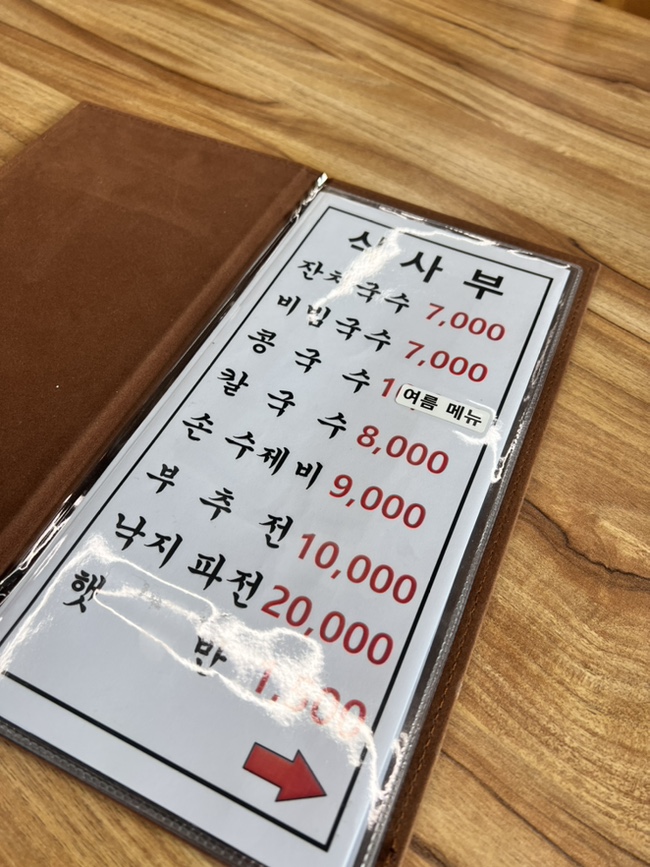 식사부
잔치국수 7,000
비빔국수 7,000
콩국수 1 여름 메뉴
칼국수 8,000
손수제비 9,000
부추전 10,000
낙지파전 20,000
햇반